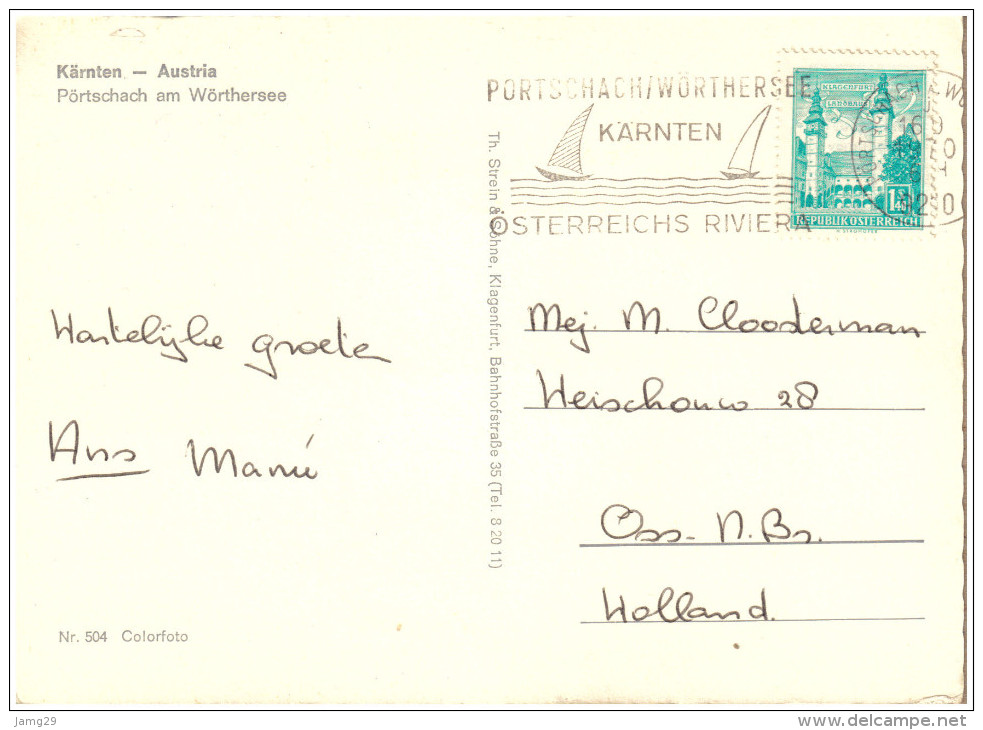 Kärnten — Austria
Pörtschach am Wörthersee
PÖRTSCHACH/WÖRTHERSEE
KÄRNTEN
ÖSTERREICHS RIVIERA
KLAGENFURT
LANDHAUS
REPUBLIK ÖSTERREICH
Th. Strein & Söhne, Klagenfurt, Bahnhofstraße 35 (Tel. 8 20 11)
Hartelijke groeten
Ans
Mej. M. Clooderman
28
Oss- N.Br.
Holland.
Nr. 504 Colorfoto
Jamg29
www.delcampe.net